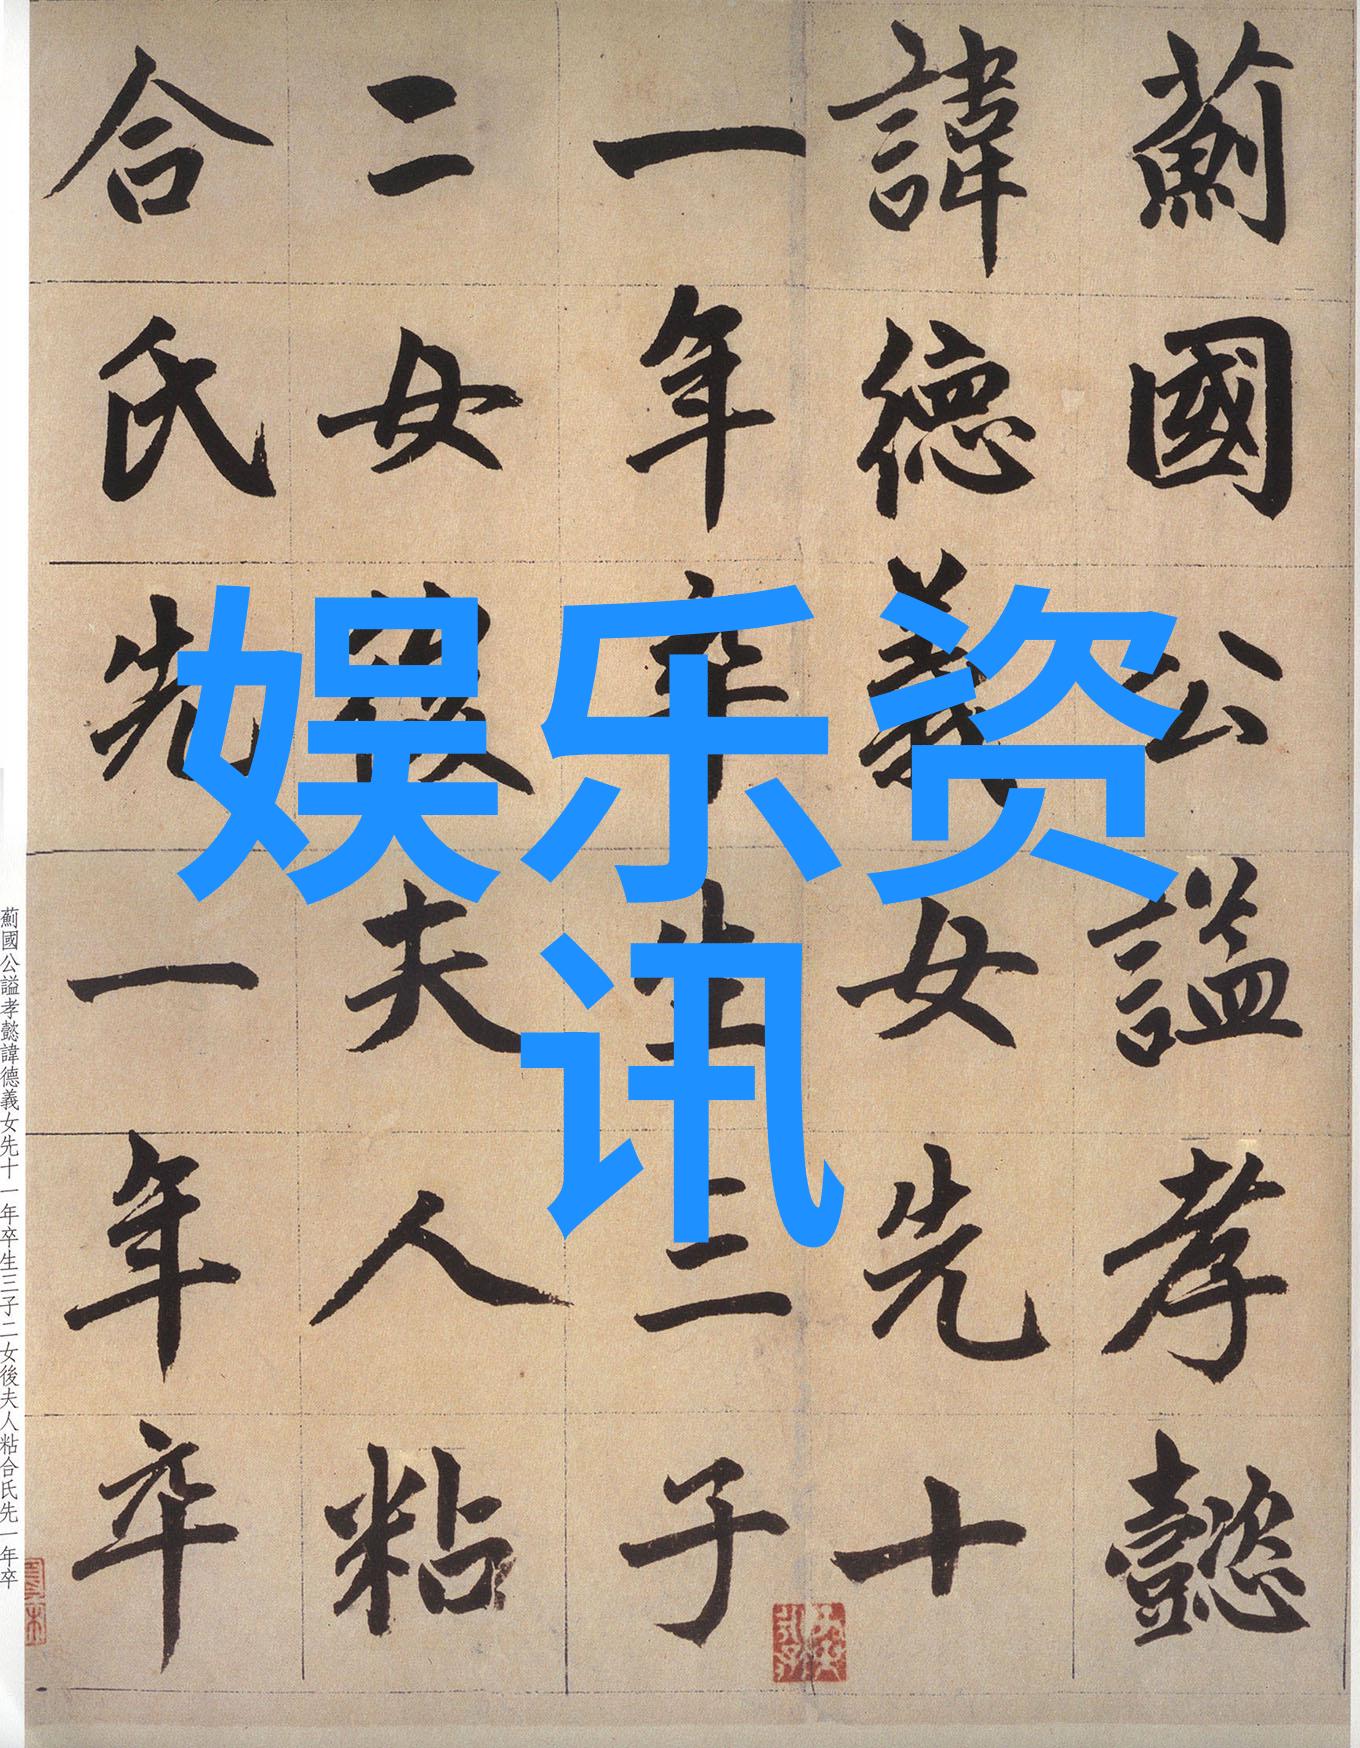 薊國公謚孝懿
諱德義女先十
一年卒生三子
二女後夫人粘
合氏先一年卒
娱乐资
讯
薊國公謚孝懿諱德義女先十一年卒生三子二女後夫人粘合氏先一年卒